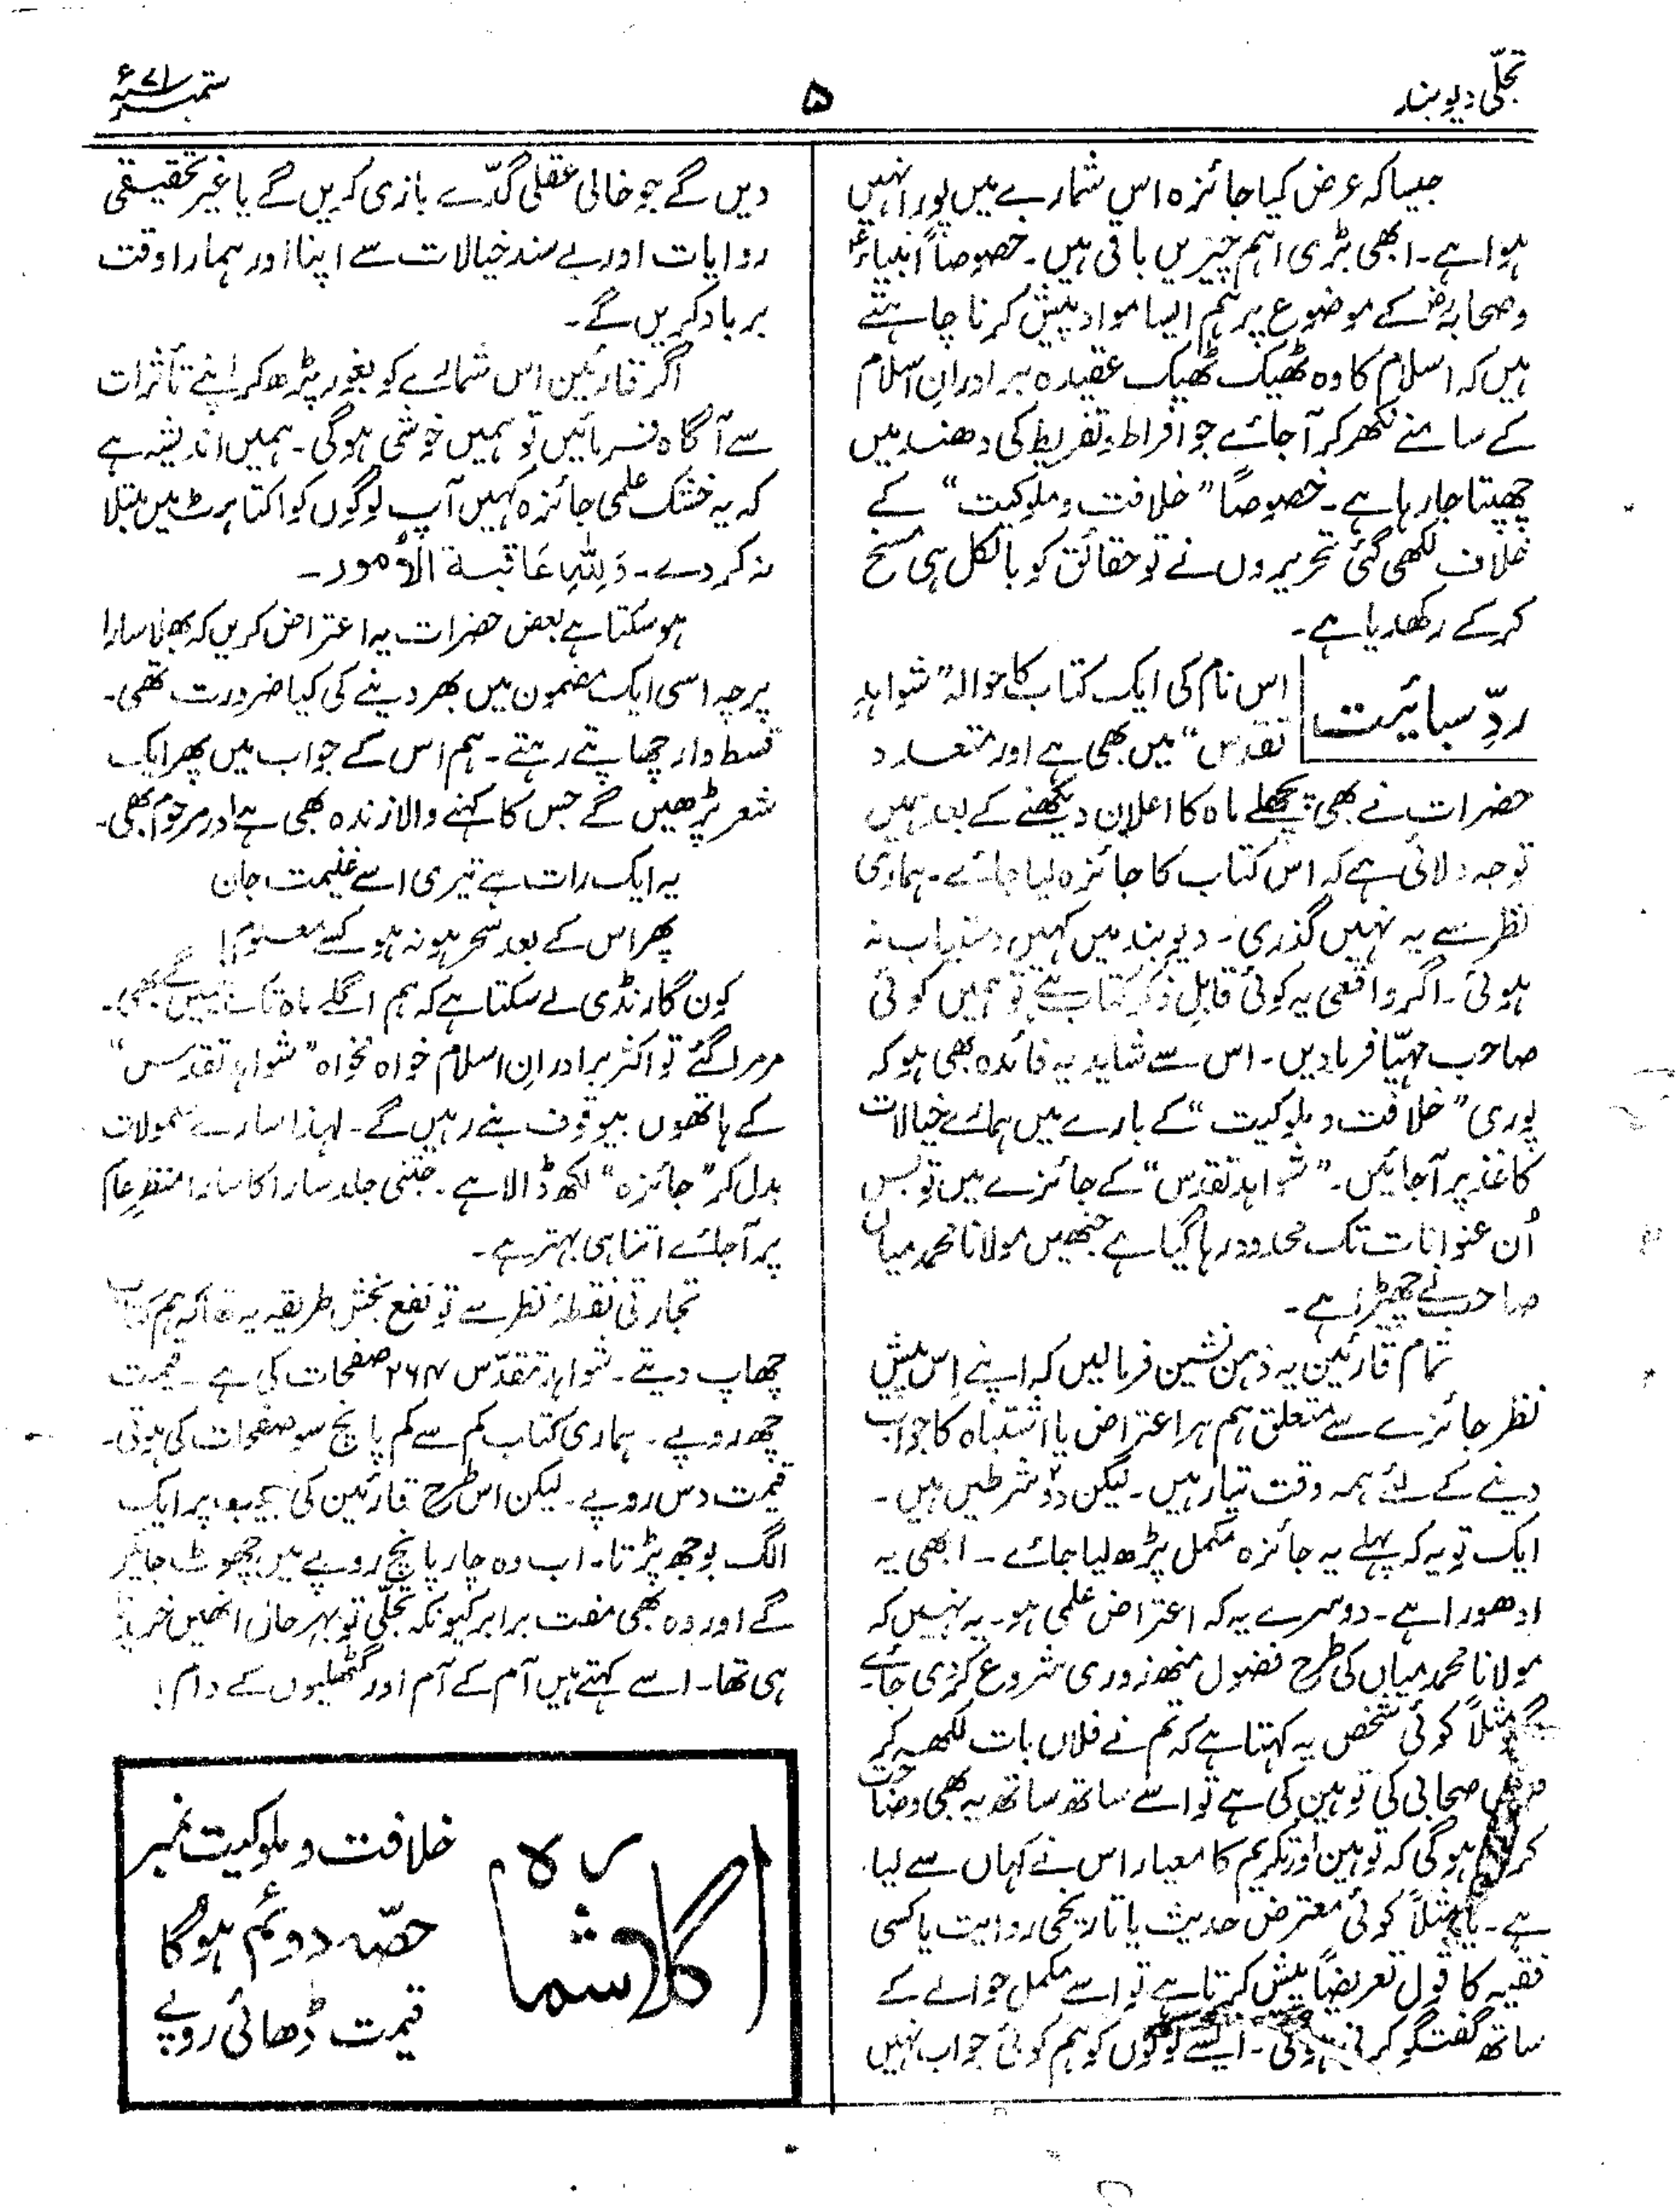 تجلّی دیوبند
۵
ستمبر ۷۱ء
جیسا کہ عرض کیا جائزہ اس شمارے میں پورا نہیں
ہوا ہے۔ ابھی بڑی اہم چیزیں باقی ہیں۔ خصوصاً انبیاءؑ
و صحابہؓ کے موضوع پر ہم ایسا مواد پیش کرنا چاہتے
ہیں کہ اسلام کا وہ ٹھیک ٹھیک عقیدہ برادرانِ اسلام
کے سامنے نکھر کر آجائے جو افراط و تفریط کی دھند میں
چھپتا جا رہا ہے۔ خصوصاً ”خلافت و ملوکیت“ کے
خلاف لکھی گئی تحریروں نے تو حقائق کو بالکل ہی مسخ
کر کے رکھدیا ہے۔
ردِّ سبائیت
اس نام کی ایک کتاب کا حوالہ ”شواہدِ
تقدس“ میں بھی ہے اور متعدد
حضرات نے بھی پچھلے ماہ کا اعلان دیکھنے کے بعد ہمیں
توجہ دلائی ہے کہ اس کتاب کا جائزہ لیا جائے۔ ہماری
نظر سے یہ نہیں گذری۔ دیوبند میں کہیں دستیاب نہ
ہوئی۔ اگر واقعی یہ کوئی قابلِ ذکر کتاب ہے تو ہمیں کوئی
صاحب مہیّا فرمادیں۔ اس سے شاید یہ فائدہ بھی ہو کہ
پوری ”خلافت و ملوکیت“ کے بارے میں ہمارے خیالات
کاغذ پر آجائیں۔ ”شواہد تقدس“ کے جائزے میں تو بس
اُن عنوانات تک محدود رہا گیا ہے جنھیں مولانا محمد میاں
صاحب نے چھیڑا ہے۔
تمام قارئین یہ ذہن نشین فرمالیں کہ اپنے اِس پیش
نظر جائزے سے متعلق ہم ہر اعتراض یا اشتباہ کا جواب
دینے کے لئے ہمہ وقت تیار ہیں۔ لیکن دو شرطیں ہیں۔
ایک تو یہ کہ پہلے یہ جائزہ مکمل پڑھ لیا جائے۔ ابھی یہ
ادھورا ہے۔ دوسرے یہ کہ اعتراض علمی ہو۔ یہ نہیں کہ
مولانا محمد میاں کی طرح فضول منھ زوری شروع کر دی جائے۔
مثلاً کوئی شخص یہ کہتا ہے کہ تم نے فلاں بات لکھ کر
صحابی کی توہین کی ہے تو اسے ساتھ ساتھ یہ بھی وضاحت
کرنی ہوگی کہ توہین اور تکریم کا معیار اس نے کہاں سے لیا
ہے۔ یا مثلاً کوئی معترض حدیث یا تاریخی روایت یا کسی
فقیہ کا قول تعریضاً پیش کرتا ہے تو اسے مکمل حوالے کے
ساتھ گفتگو کرنی ہوگی۔ ایسے لوگوں کو ہم کوئی جواب نہیں
دیں گے جو خالی عقلی گدّے بازی کریں گے یا غیر تحقیقی
روایات اور بے سند خیالات سے اپنا اور ہمارا وقت
برباد کریں گے۔
اگر قارئین اس شمارے کو بغور پڑھ کر اپنے تأثرات
سے آگاہ فرمائیں تو ہمیں خوشی ہوگی۔ ہمیں اندیشہ ہے
کہ یہ خشک علمی جائزہ کہیں آپ لوگوں کو اکتاہٹ میں مبتلا
نہ کردے۔ وَلِلّٰہِ عَاقبۃ الاُمور۔
ہوسکتا ہے بعض حضرات یہ اعتراض کریں کہ بھلا سارا
پرچہ اسی ایک مضمون میں بھر دینے کی کیا ضرورت تھی۔
قسط وار چھاپتے رہتے۔ ہم اس کے جواب میں پھر ایک
شعر پڑھیں گے جس کا کہنے والا زندہ بھی ہے اور مرحوم بھی۔
یہ ایک رات ہے تیری اسے غنیمت جان
پھر اس کے بعد سحر ہو نہ ہو کسے معلوم!
کون گارنٹی دے سکتا ہے کہ ہم اگلے ماہ تک جئیں گے بھی۔
مرمرا گئے تو اکثر برادرانِ اسلام خواہ مخواہ ”شواہد تقدس“
کے ہاتھوں بیوقوف بنے رہیں گے۔ لہٰذا سارے معمولات
بدل کر ”جائزہ“ لکھ ڈالا ہے۔ جتنی جلد سارا کا سارا منظرِ عام
پر آجائے اتنا ہی بہتر ہے۔
تجارتی نقطۂ نظر سے تو نفع بخش طریقہ یہ تھا کہ ہم کتاب
چھاپ دیتے۔ شواہد تقدس ۲۶۴ صفحات کی ہے۔ قیمت
چھ روپے۔ ہماری کتاب کم سے کم پانچ سو صفحات کی ہوتی۔
قیمت دس روپے۔ لیکن اس طرح قارئین کی جیب پر ایک
الگ بوجھ پڑتا۔ اب وہ چار پانچ روپے میں چھوٹ جائیں
گے اور وہ بھی مفت برابر کیونکہ تجلّی تو بہرحال انھیں خریدنا
ہی تھا۔ اسے کہتے ہیں آم کے آم اور گٹھلیوں کے دام!
اگلا شمارہ
خلافت و ملوکیت نمبر
حصّہ دوئم ہوگا
قیمت ڈھائی روپے